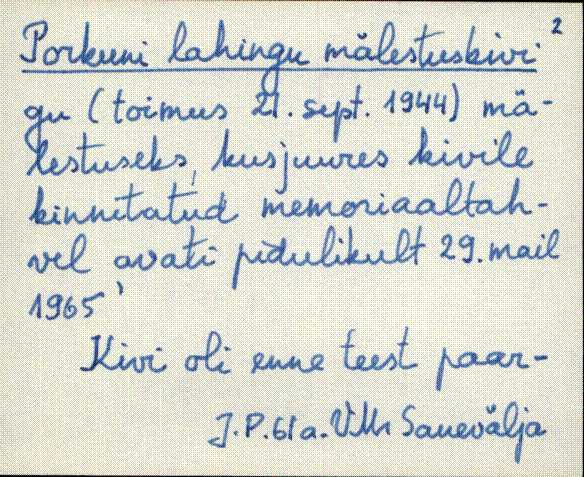 2
Porkuni lahingu mälestuskivi
gu (toimus 21. sept. 1944) mä-
lestuseks, kusjuures kivile
kinnitatud memoriaaltah-
vel avati pidulikult 29. mail
1965'
Kivi oli enne teest paar-
J.P. 61 a. V.Mr Sauevälja